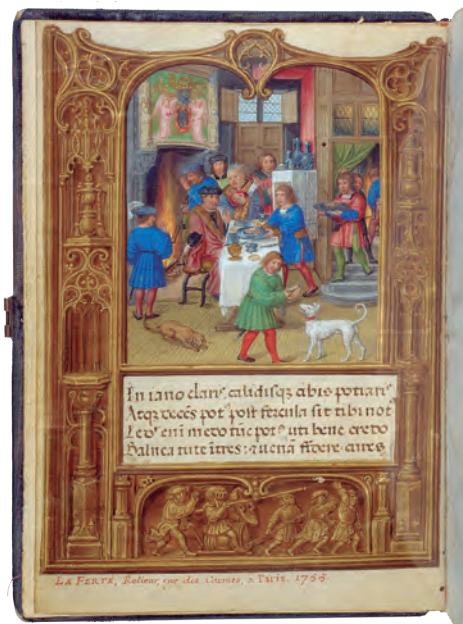 In iano clarꝰ calidisqꝫ cibis potiarꝰ
Atqꝫ decēs potꝰ post fercula sit tibi notꝰ
Ledꝰ enī medo tūc potꝰ uti bene credo
Balnea tute ītres: ⁊ uenā fīdere cures
LA FERTÉ, Relieur, rue des Carmes, a Paris.